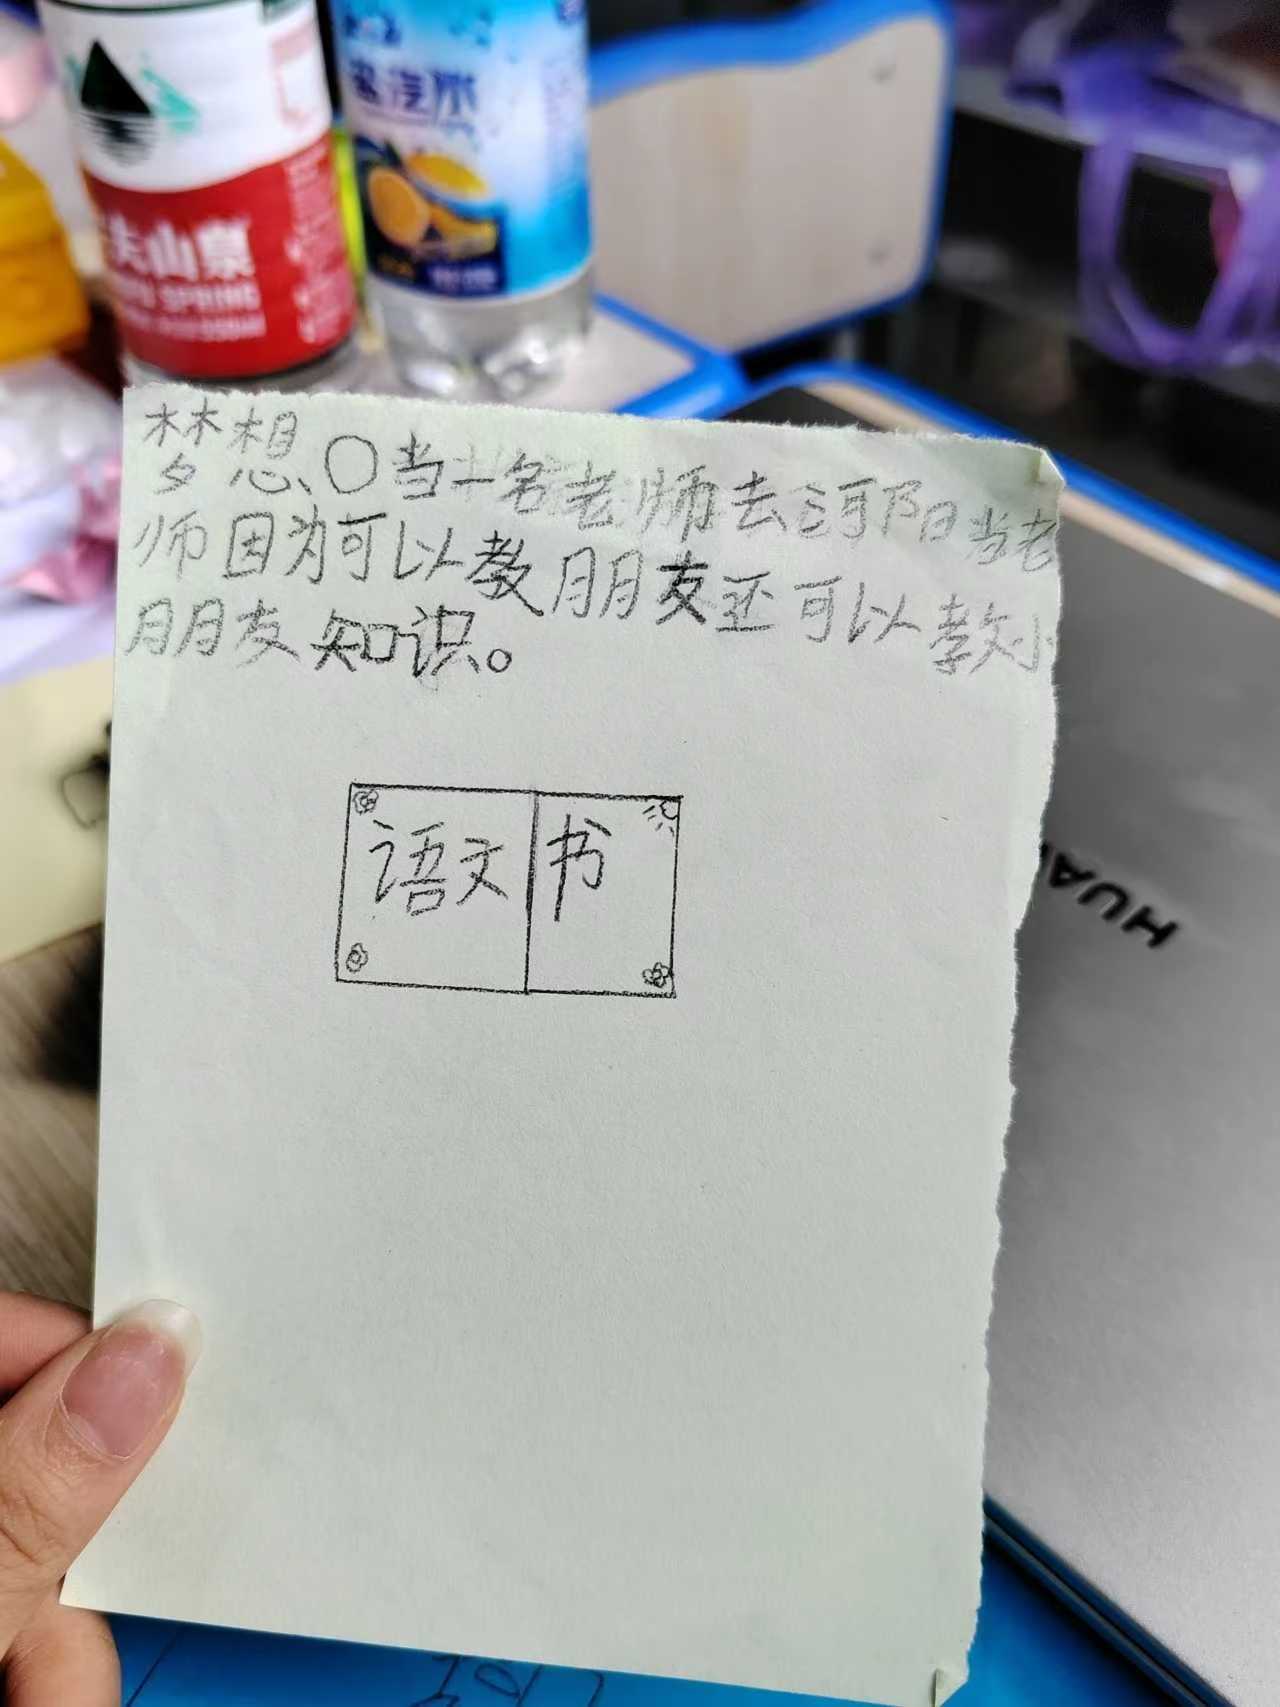 夫山泉
SPRING
盐汽水
梦想〇当一名老师去河阳当老
师因为可以教月月朋友还可以教小
月月朋友知识。
语文书
HUA